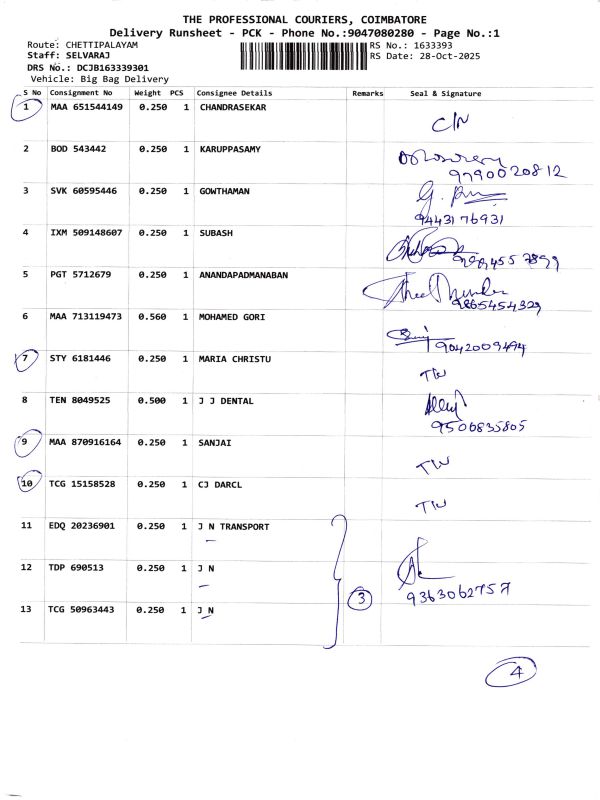 THE PROFESSIONAL COURIERS, COIMBATORE
Delivery Runsheet - PCK - Phone No.:9047080280 - Page No.:1
Route: CHETTIPALAYAM RS No.: 1633393
Staff: SELVARAJ RS Date: 28-Oct-2025
DRS No.: DCJB163339301
Vehicle: Big Bag Delivery
S No Consignment No Weight PCS Consignee Details Remarks Seal & Signature
1 MAA 651544149 0.250 1 CHANDRASEKAR
C/N
2 BOD 543442 0.250 1 KARUPPASAMY
9790020812
3 SVK 60595446 0.250 1 GOWTHAMAN
9443176931
4 IXM 509148607 0.250 1 SUBASH
5 PGT 5712679 0.250 1 ANANDAPADMANABAN
9865454329
6 MAA 713119473 0.560 1 MOHAMED GORI
9042009494
7 STY 6181446 0.250 1 MARIA CHRISTU
TW
8 TEN 8049525 0.500 1 J J DENTAL
9500835805
9 MAA 870916164 0.250 1 SANJAI
TW
10 TCG 15158528 0.250 1 CJ DARCL
TW
11 EDQ 20236901 0.250 1 J N TRANSPORT
12 TDP 690513 0.250 1 J N
9363062757
13 TCG 50963443 0.250 1 J N 3
4